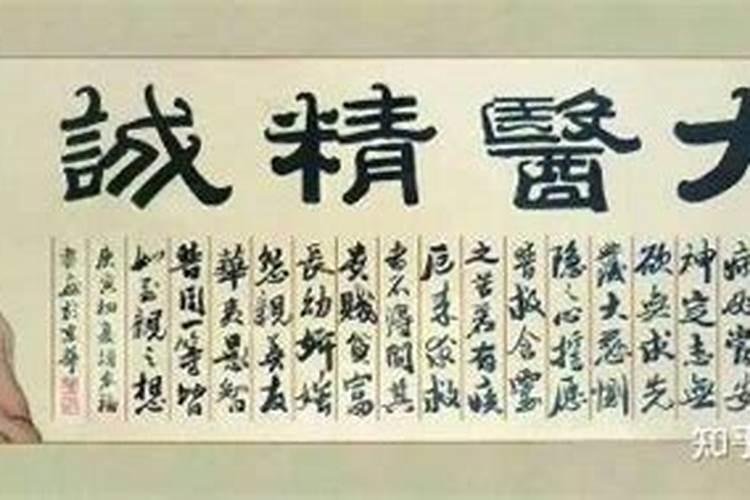 大醫精誠
病必當安
神定志無
欲無求先
發大慈惻
隱之心誓願
普救含靈
之苦若有疾
厄来求救
者不得問其
貴賤貧富
長幼妍媸
怨親善友
華夷愚智
普同一等皆
如至親之想
庚寅初夏
於京華
知乎